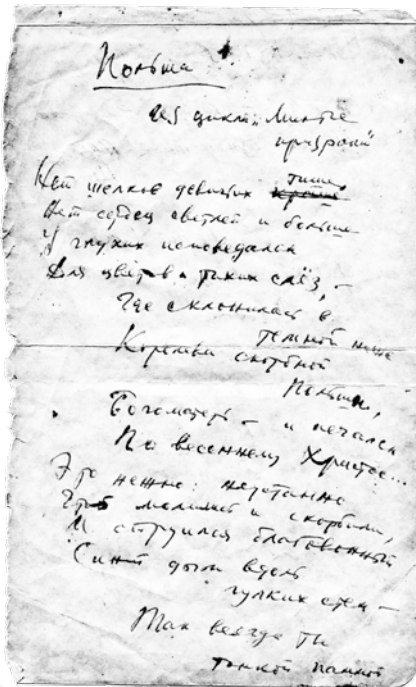 Польша
Из цикла „Милые
призраки“
Нет шелков девичьих краше тише,
Нет сердец светлей и больше
У глухих исповедален
Для цветов и тихих слёз, –
Где склонилась в
темной нише
Королева скорбной
Польши,
Богоматерь – и печален
По весеннему Христос...
нежно:
молилась и скорбила,
И струился благовонный
Синий дым вдоль
гулких стен –
Так всегда ты
тонкой панной